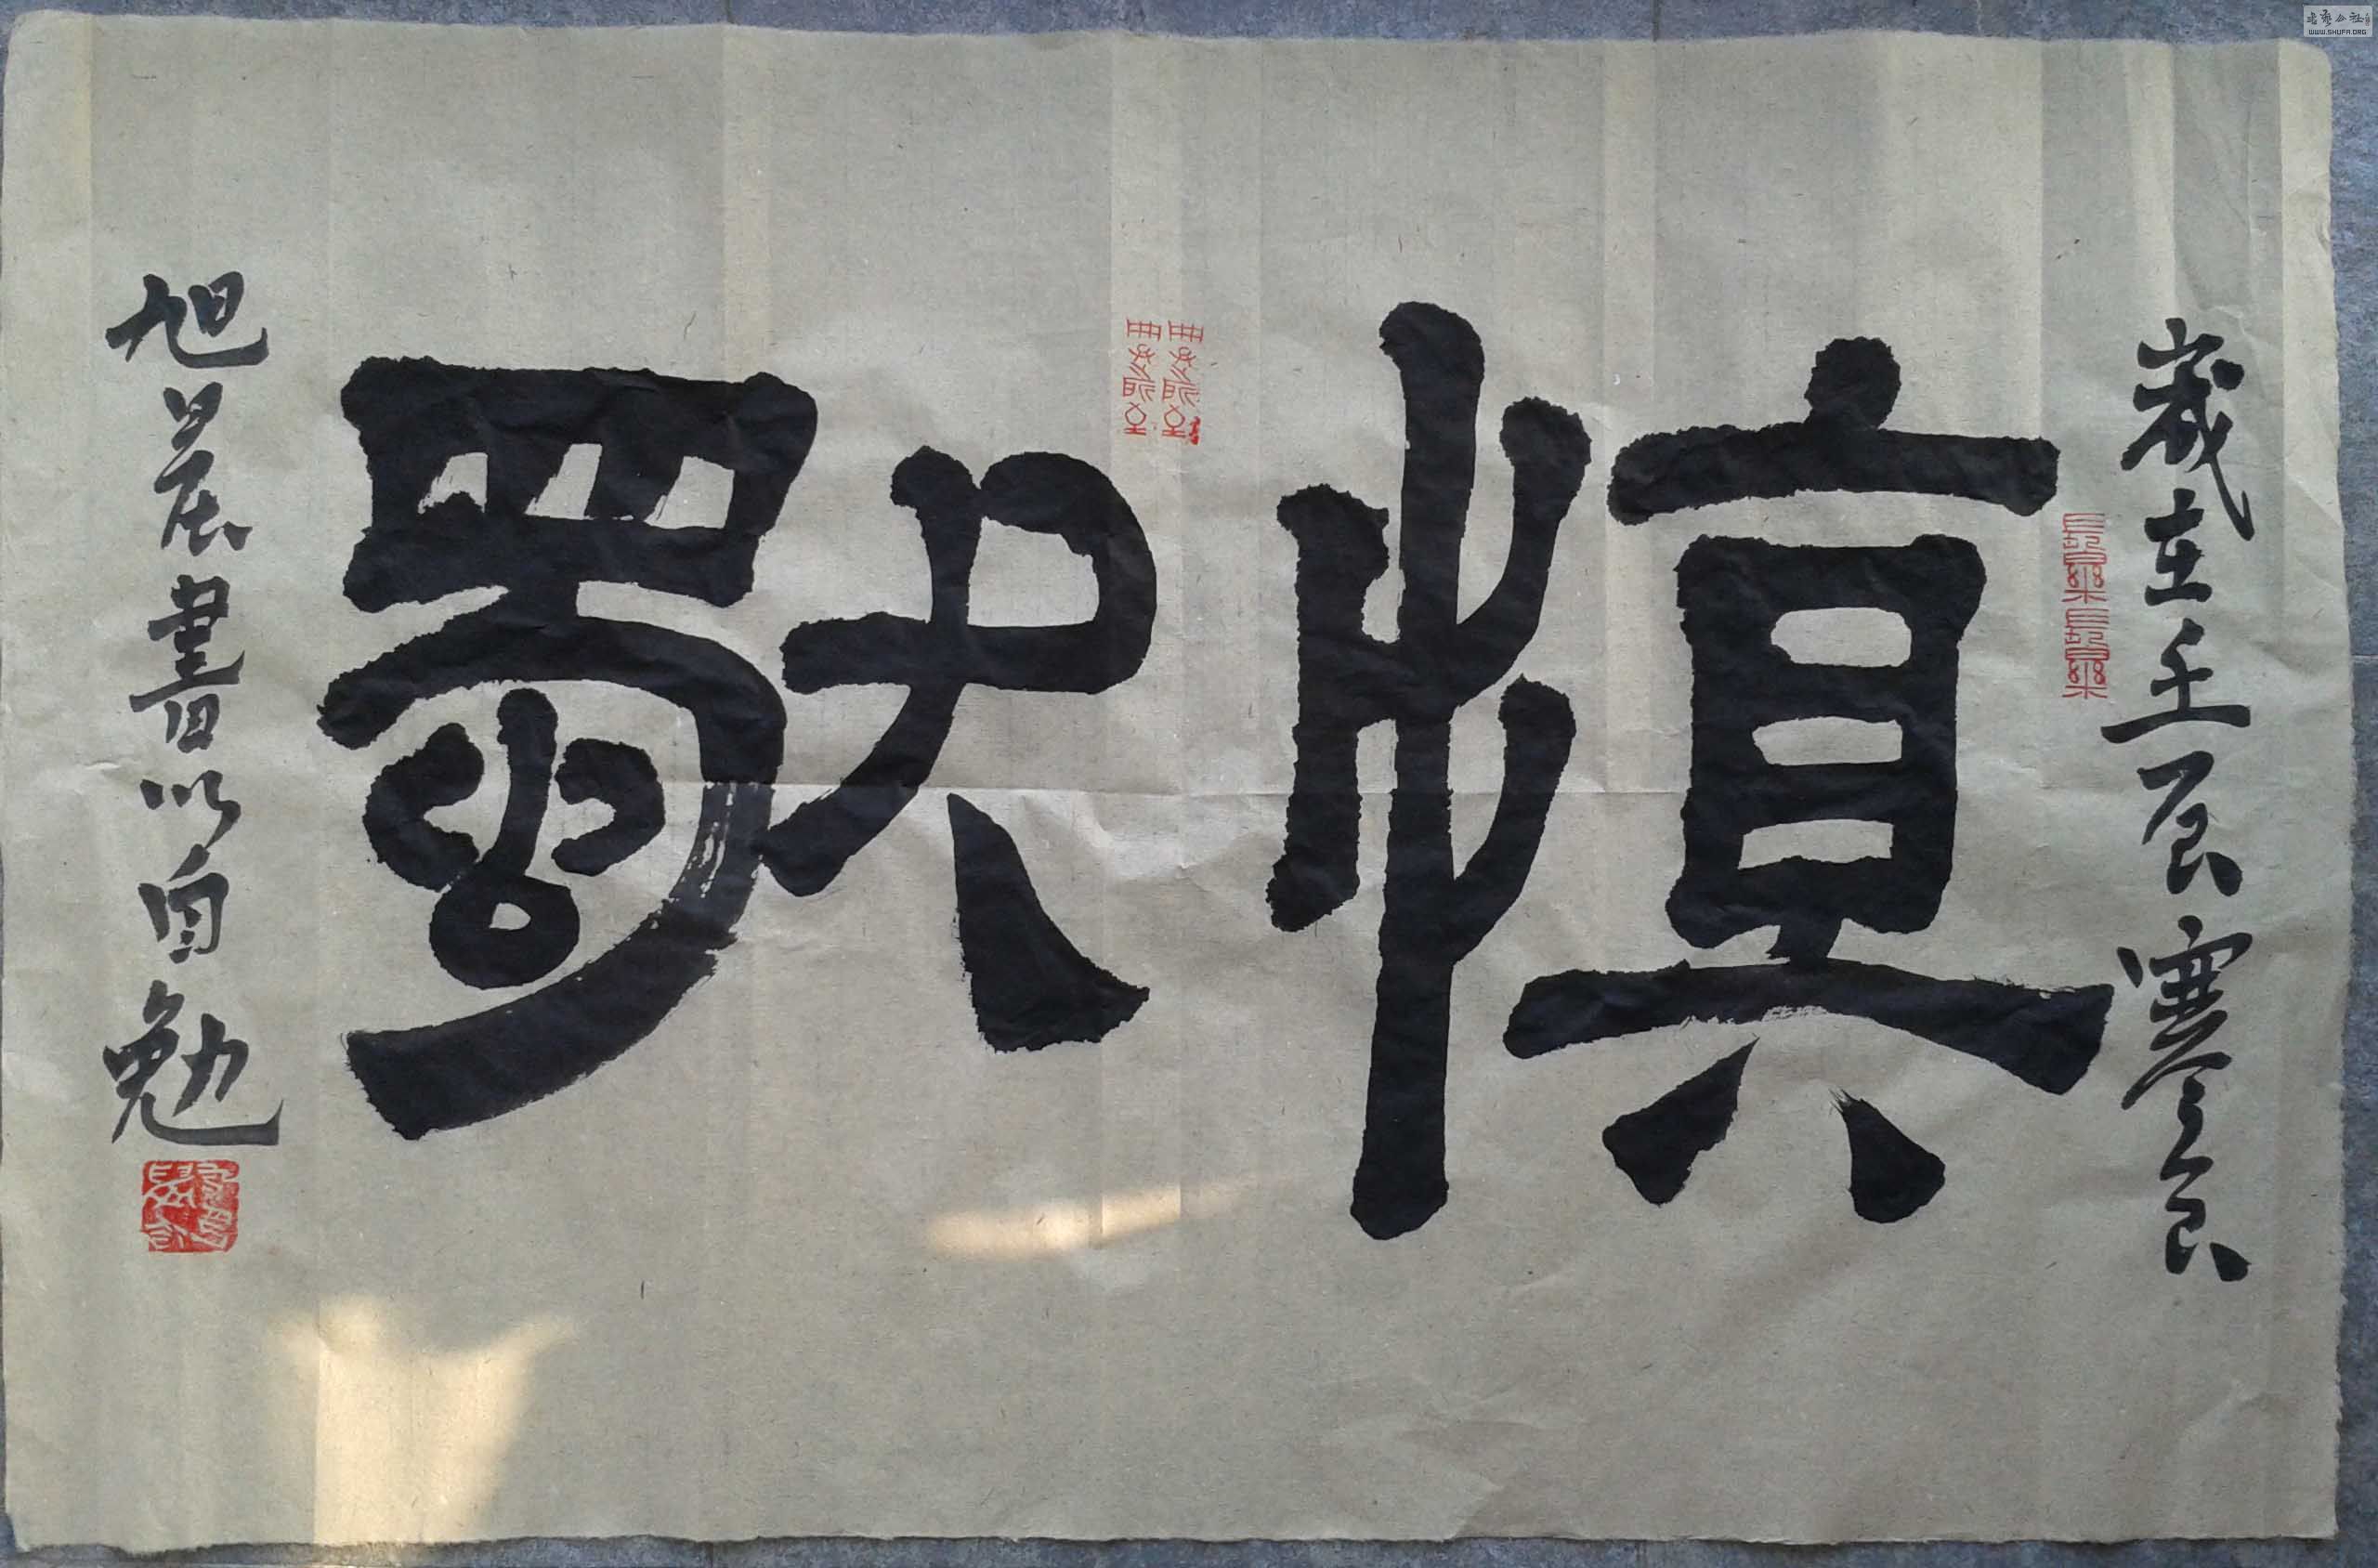 歲在壬辰寒食
慎獨
旭晨書以自勉
WWW.SHUFA.ORG